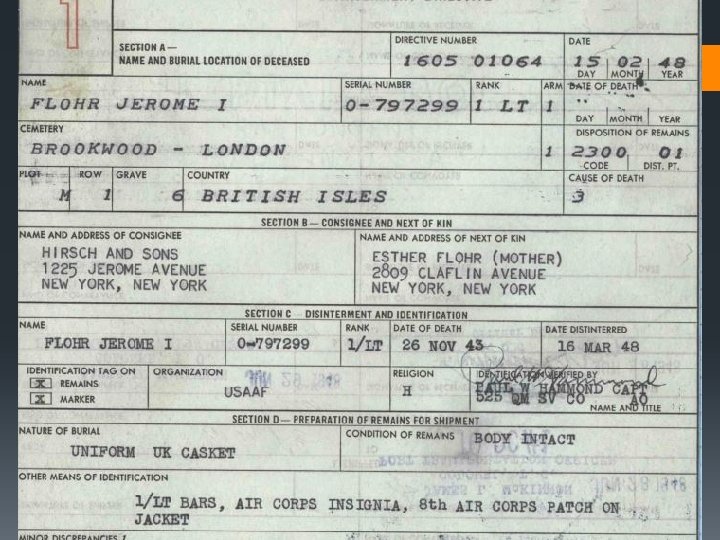 1
SECTION A—
NAME AND BURIAL LOCATION OF DECEASED
DIRECTIVE NUMBER
1605 01064
DATE
15 02 48
DAY MONTH YEAR
NAME
FLOHR JEROME I
SERIAL NUMBER
0-797299
RANK
1 LT
ARM
1
DATE OF DEATH
DAY MONTH YEAR
CEMETERY
BROOKWOOD - LONDON
1
DISPOSITION OF REMAINS
2300 01
CODE DIST. PT.
PLOT ROW GRAVE COUNTRY
M 1 6 BRITISH ISLES
CAUSE OF DEATH
3
SECTION B — CONSIGNEE AND NEXT OF KIN
NAME AND ADDRESS OF CONSIGNEE
HIRSCH AND SONS
1225 JEROME AVENUE
NEW YORK, NEW YORK
NAME AND ADDRESS OF NEXT OF KIN
ESTHER FLOHR (MOTHER)
2809 CLAFLIN AVENUE
NEW YORK, NEW YORK
SECTION C — DISINTERMENT AND IDENTIFICATION
NAME
FLOHR JEROME I
SERIAL NUMBER
0-797299
RANK
1/LT
DATE OF DEATH
26 NOV 43
DATE DISINTERRED
16 MAR 48
IDENTIFICATION TAG ON
X REMAINS
X MARKER
ORGANIZATION
USAAF
RELIGION
H
IDENTIFICATION VERIFIED BY
PAUL W HAMMOND CAPT
525 QM SV CO AO
NAME AND TITLE
SECTION D — PREPARATION OF REMAINS FOR SHIPMENT
NATURE OF BURIAL
UNIFORM UK CASKET
CONDITION OF REMAINS
BODY INTACT
OTHER MEANS OF IDENTIFICATION
1/LT BARS, AIR CORPS INSIGNIA, 8th AIR CORPS PATCH ON
JACKET
MINOR DISCREPANCIES